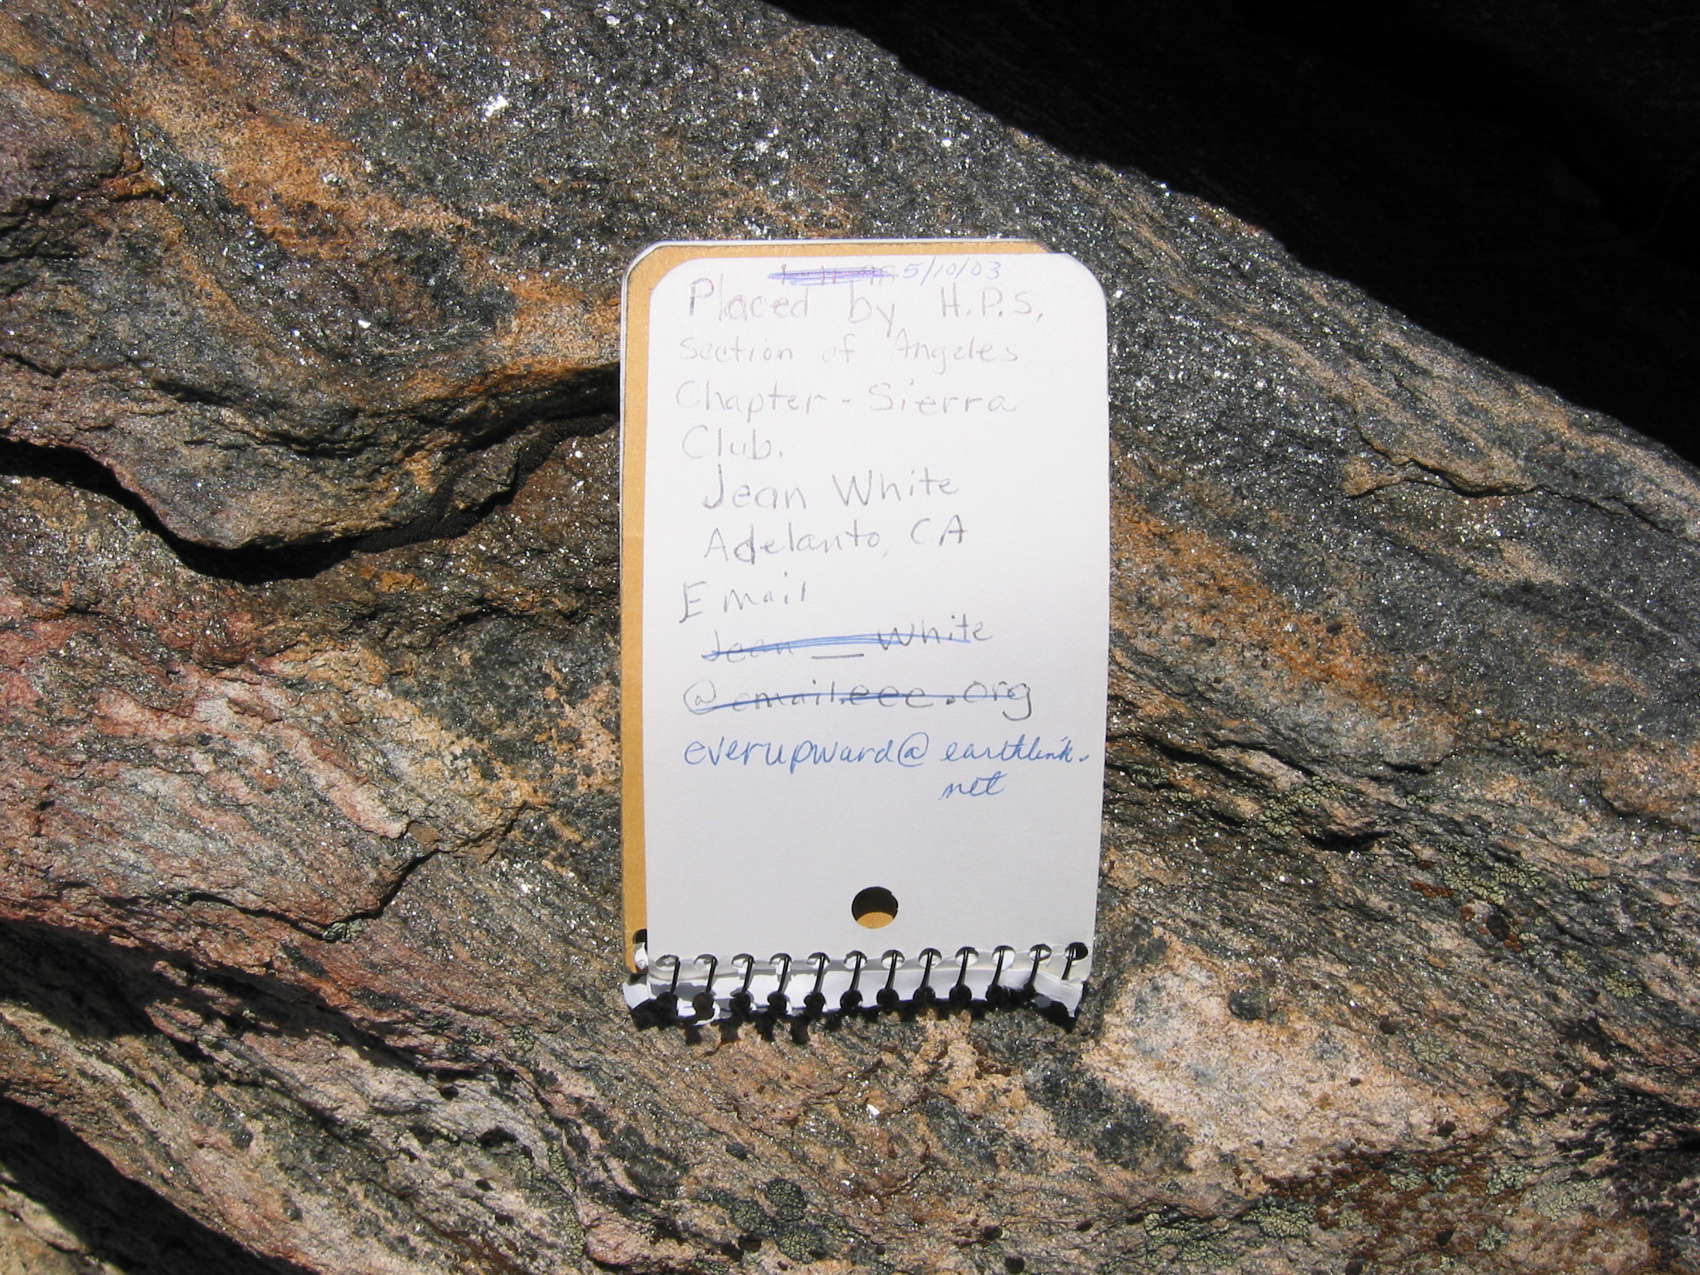 5/10/03
Placed by H.P.S.
Section of Angeles
Chapter - Sierra
Club.
Jean White
Adelanto, CA
Email
Jean __ White
@email.eee.org
everupward@earthlink.
net